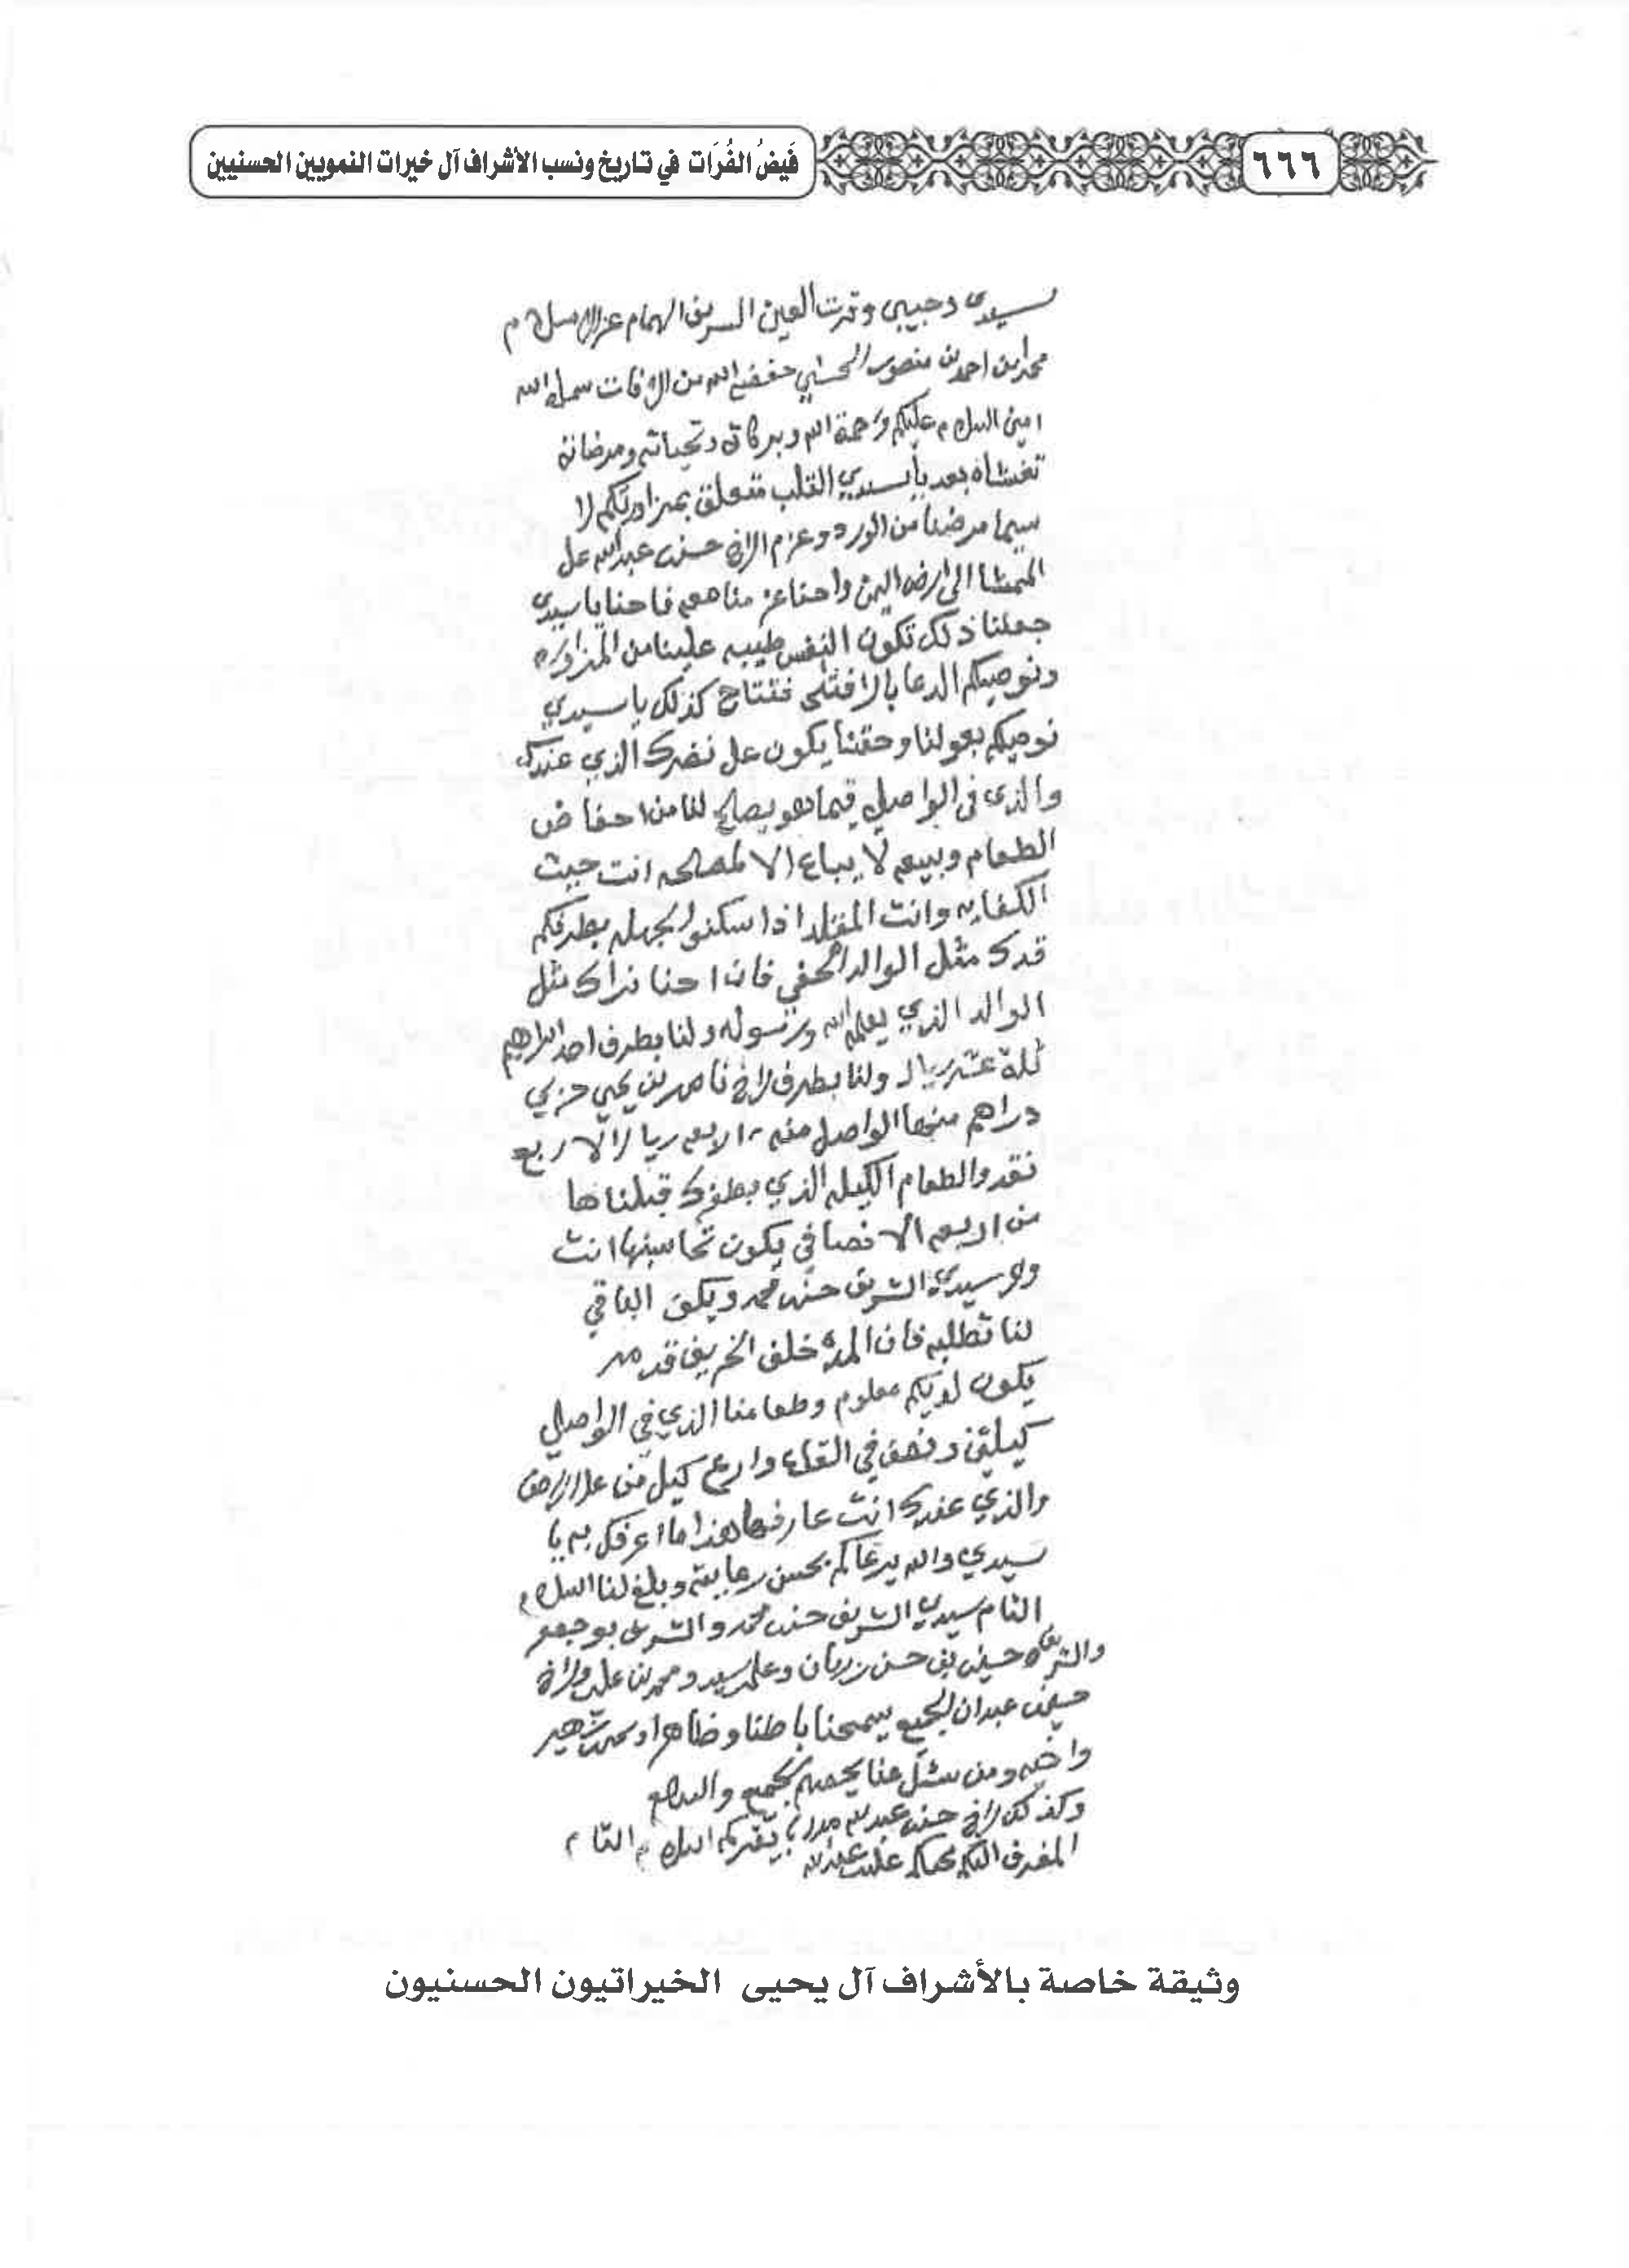 فَيضُ الفُرَات في تاريخ ونسب الأشراف آل خيرات النمويين الحسنيين
٦٦٦
سيدي وحبيبي وقرت العين الشريف الهمام عز الاسلام
محمد ابن احمد بن منصور حفضه الله من الافات سلمه الله
امين السلام عليكم ورحمة الله وبركاته وتحياته ومرضاته
تغشاه بعد يا سيدي القلب متعلق بمزاورتكم لا
سيما مرضنا من الورد وعزم الاخ حسن عبدالله على
الممشا الى ارض اليمن واحنا معه فاحنا يا سيدي
جعلنا ذلك تكون النفس طيبه علينا من المزاوره
ونوصيكم الدعا كذلك يا سيدي
نوصيكم بعولنا وحقنا يكون على نضرك الذي عندك
والذي في الواصلي فيما هو يصلح لنا من احفاض
الطعام وبيعه لا يباع الا لمصلحه انت حيث
الكفايه وانت المقلد اذا سكنو الجهله بطرفكم
قدك مثل الوالد الحفي فان احنا نراك مثل
الوالد الذي يعلمه الله ورسوله ولنا بطرف احمد ابراهيم
ثلاثة عشر ريال ولنا بطرف الاخ ناصر بن يحيى
دراهم منها الواصل منه اربعه ريال الا ربع
نقد والطعام الكيله الذي بطرفك قبلناها
من اربعه الا نصافي يكون تحاسبنها انت
وهو سيدي الشريف حسن محمد ويكن الباقي
لنا تطلبه فان المده خلف الخريف قد مر
يكون لديكم معلوم وطعامنا الذي في الواصلي
كيلتين ونصف في القاع واربع كيل
والذي عندك انت عارفها هذا ما اعرفك به يا
سيدي والله يرعاكم بحسن رعايته وبلغ لنا السلام
التام سيدي الشريف حسن محمد والشريف
والشريف حسين بن حسن وعلي سيد ومحمد بن علي والاخ
حسين عبدان الجميع يسمحنا باطنا وظاهرا
واخيه ومن سئل عنا يخصهم الجميع والسلام
وكذلك الاخ حسن عبدالله يقريكم السلام التام
المفرق اليكم علي عبدالله
وثيقة خاصة بالأشراف آل يحيى الخيراتيون الحسنيون